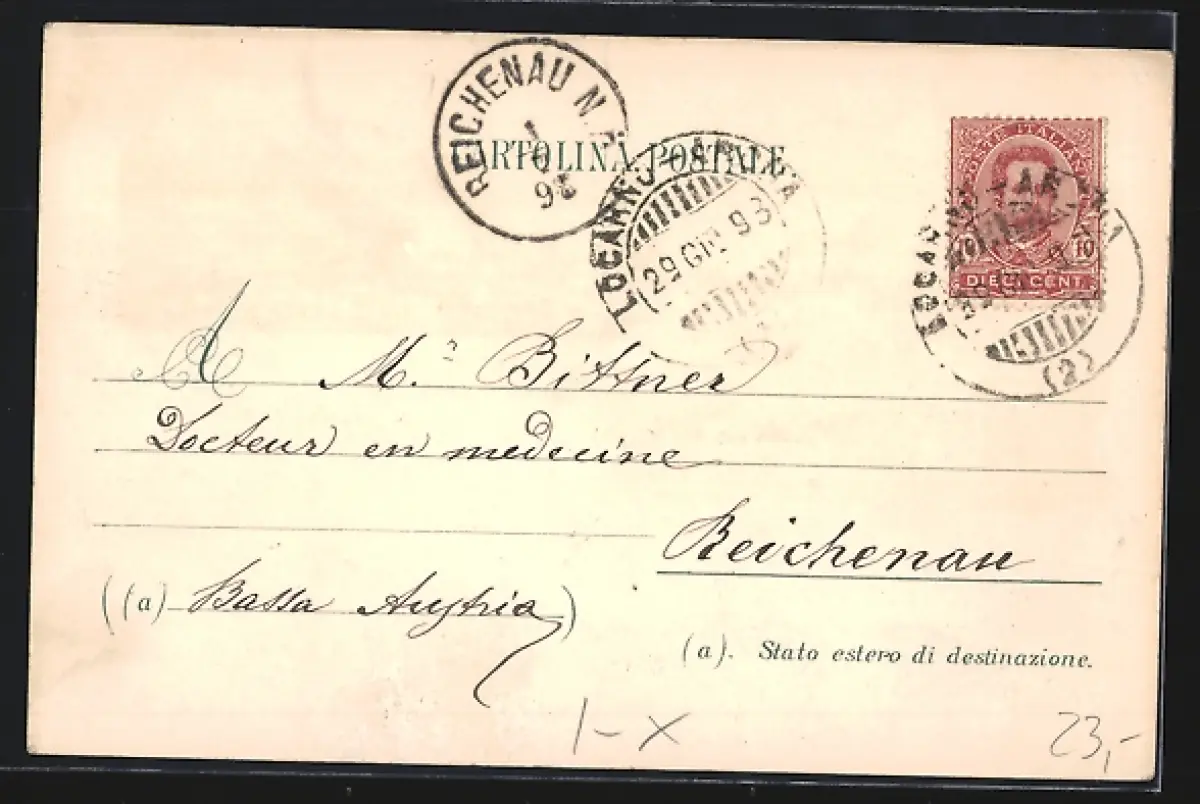 REICHENAU N.
CARTOLINA POSTALE
LOCARNO - ARONA
29 GIU 93
POSTE ITALIANE
10
DIECI CENT.
(2)
A M.r Bittner
Docteur en medecine
Reichenau
((a) Bassa Austria)
(a). Stato estero di destinazione.
1-X
23,-